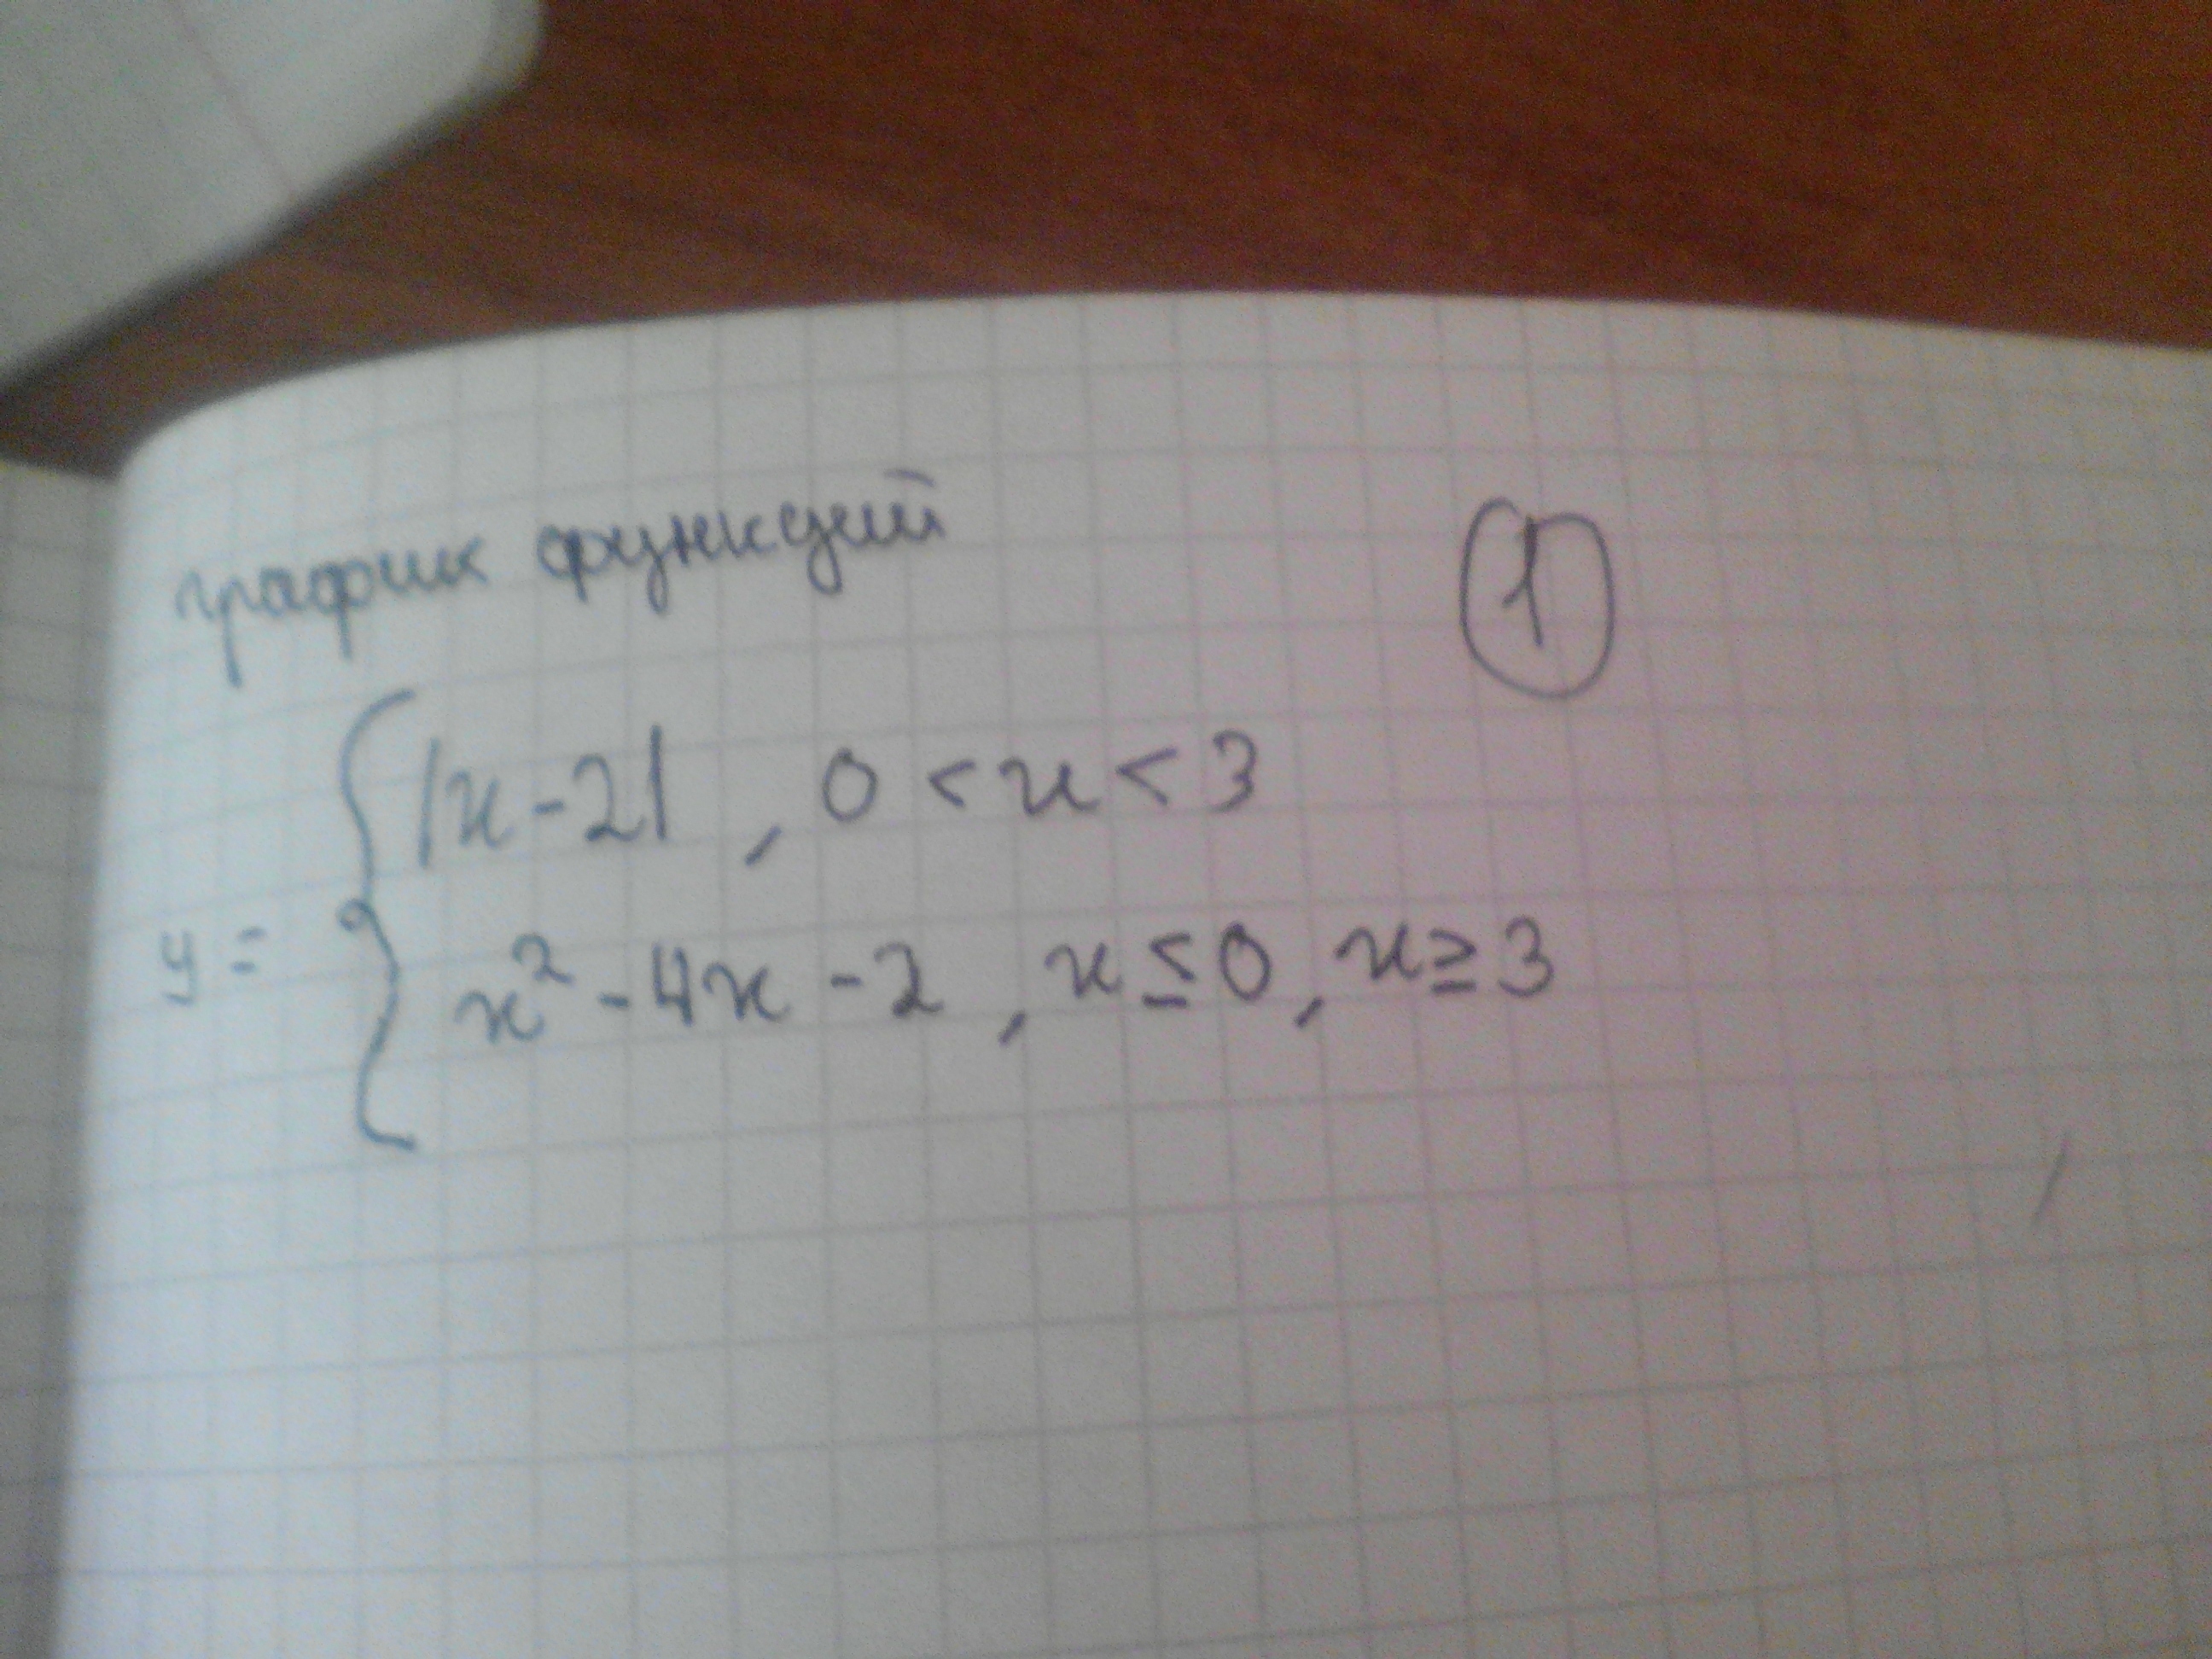 график функций
1
y = { |x-2| , 0 < x < 3
x² - 4x - 2 , x ≤ 0, x ≥ 3